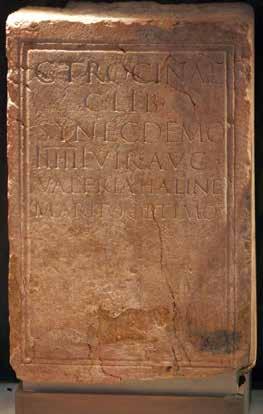 C TROCINAE
C LIB
SYNECDEMO
IIIIII VIR AVG
VALERIA HALINE
MARITO OPTIMO